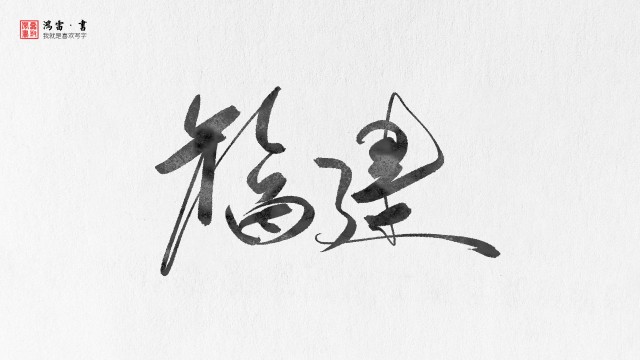 鸿雷·書
我就是喜欢写字
福建